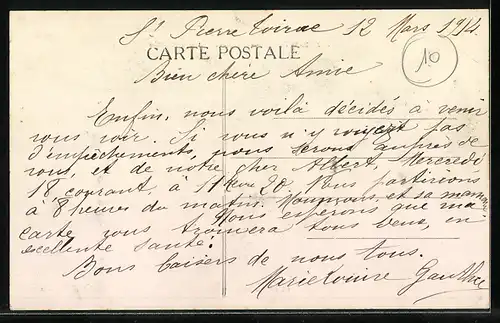 St Pierre Toirac 12 Mars 1914.
10
CARTE POSTALE
Bien chère Amie
Enfin, nous voilà décidés à venir
vous voir. Si vous n'y voyez pas
d'empêchements, nous serons auprès de
vous, et de notre cher Albert, Mercredi
18 courant, à 11 heure 20. Nous partirions
à 8 heures du matin. et sa maman
Nous espérons que ma
carte vous trouvera tous deux, en
excellente santé.
Bons baisers de nous tous.
Marie